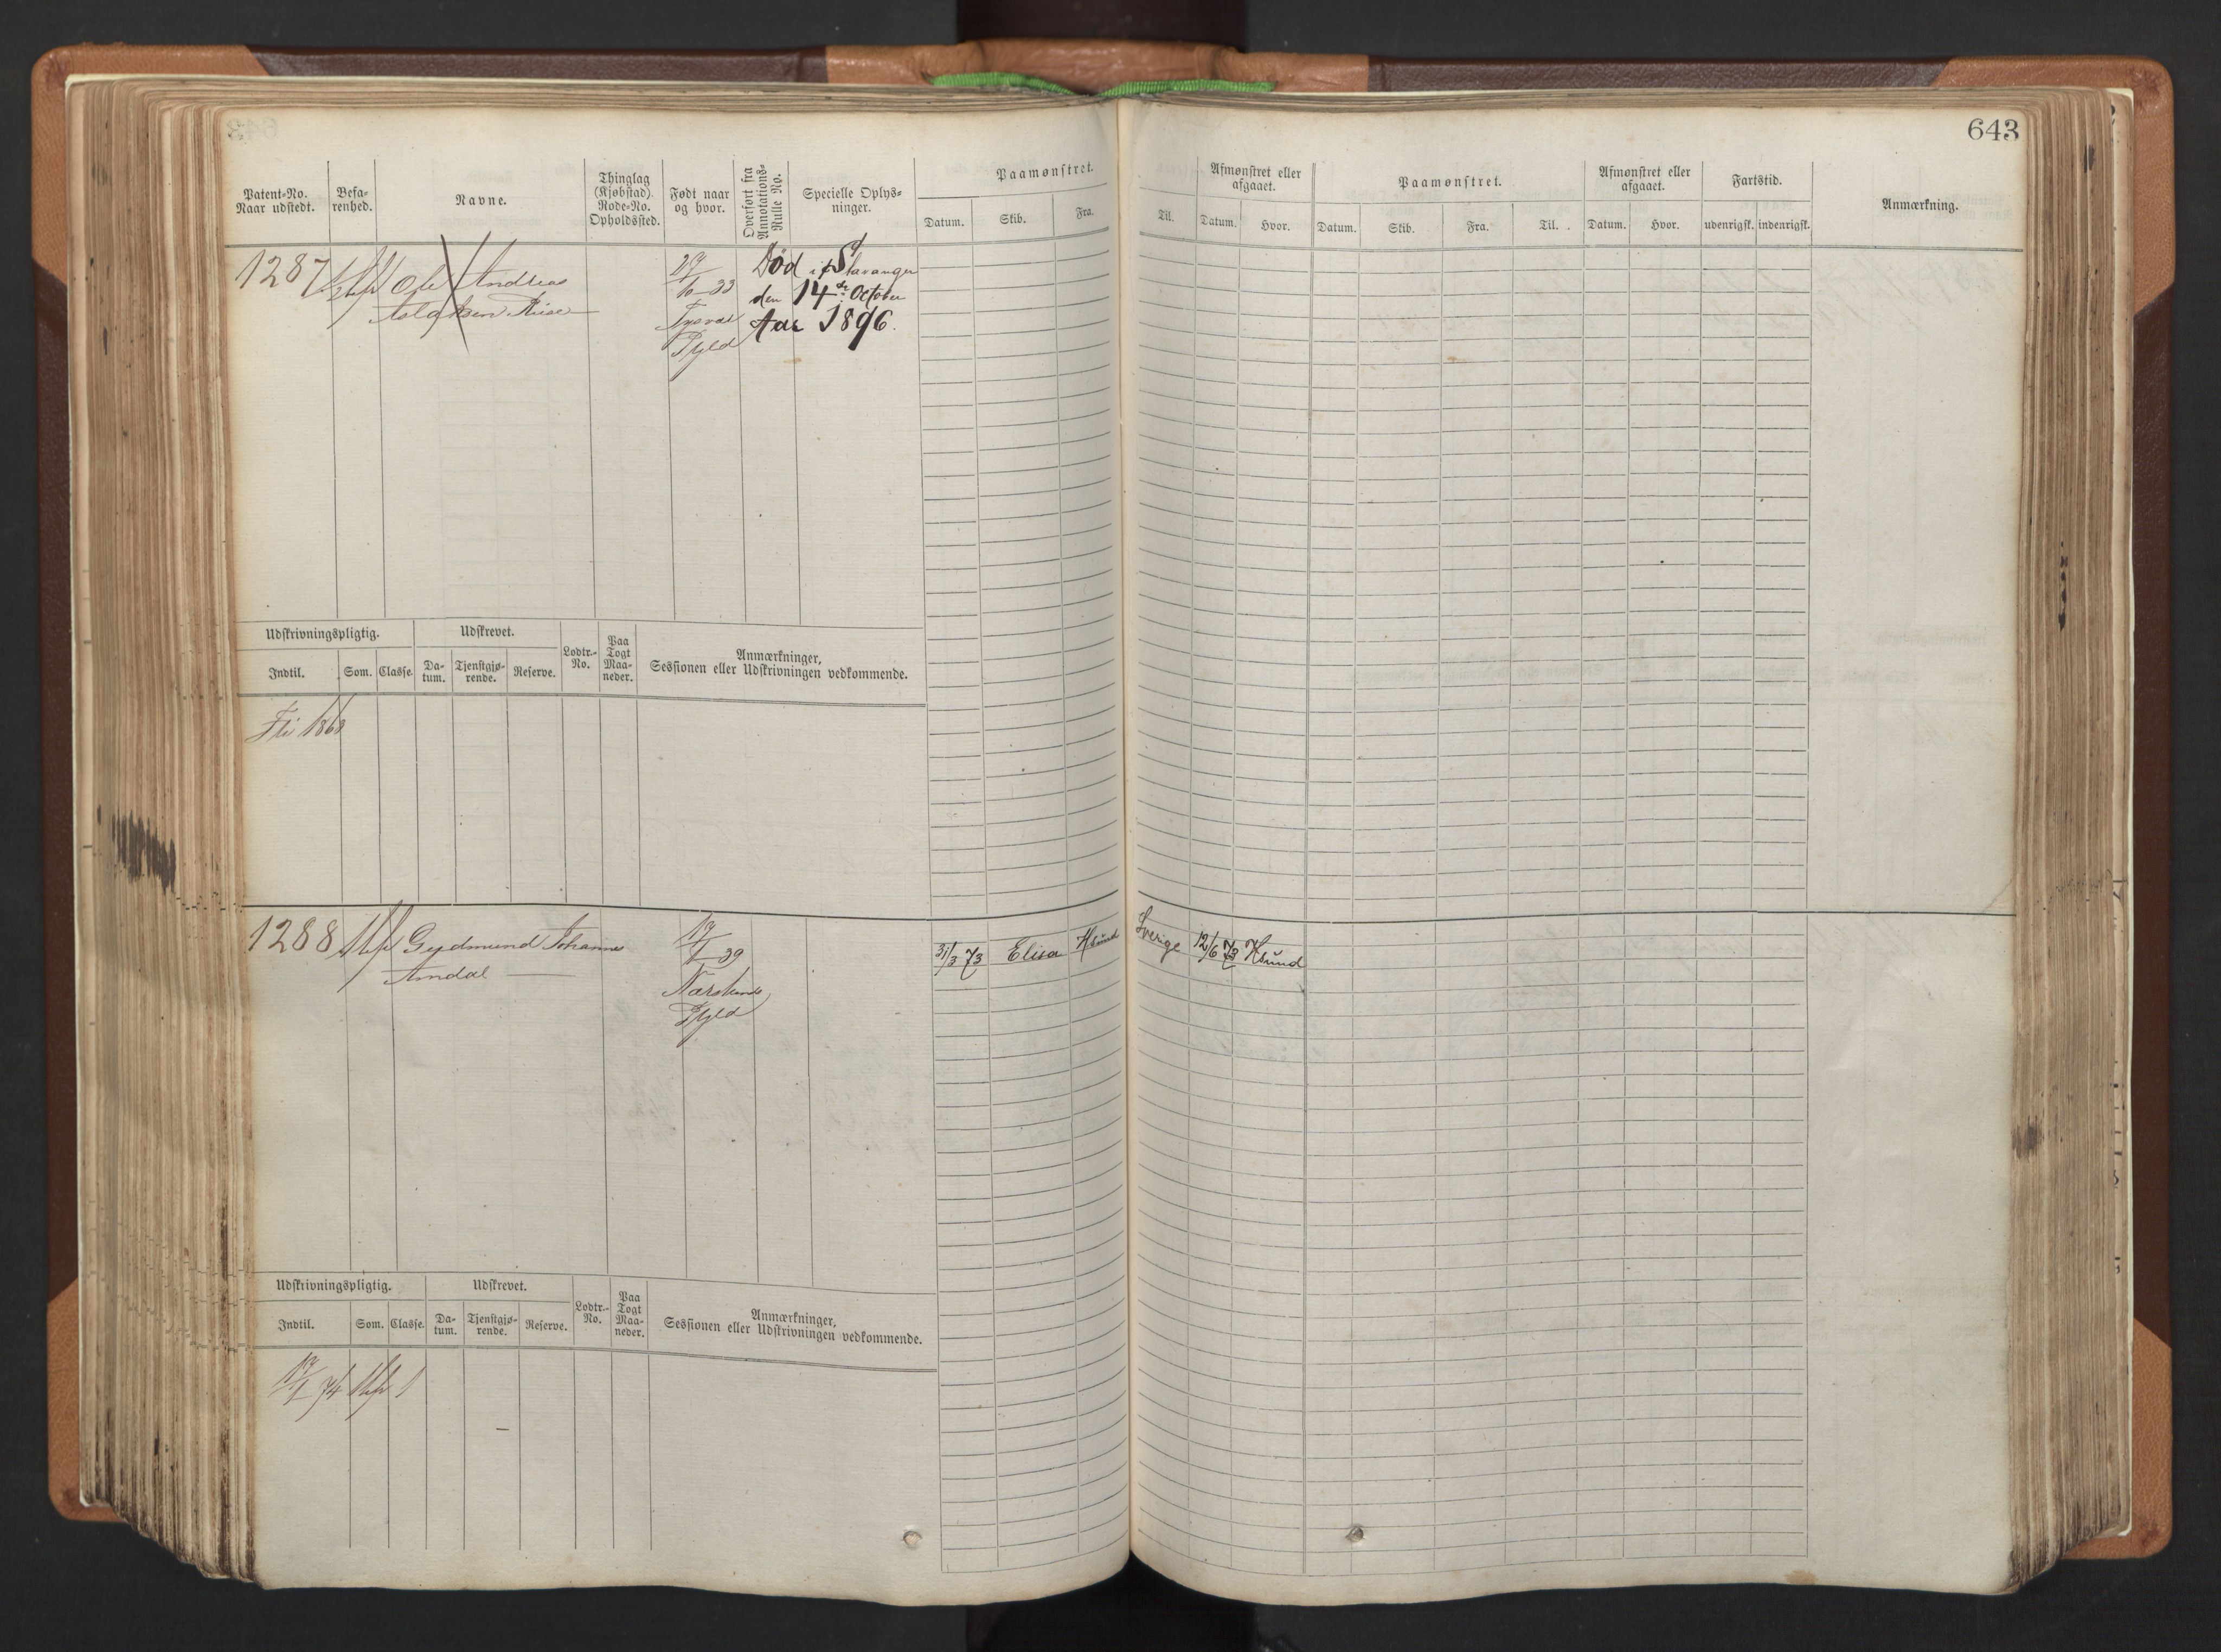 643
Patent-No. Naar udstedt.
Befarenhed.
Navne.
Thinglag (Kjøbstad). Rode-No. Opholdssted.
Født naar og hvor.
Overført fra Annotations-Rulle No.
Specielle Oplysninger.
Paamønstret.
Datum.
Skib.
Fra.
Til.
Afmønstret eller afgaaet.
Datum.
Hvor.
Paamønstret.
Datum.
Skib.
Fra.
Til.
Afmønstret eller afgaaet.
Datum.
Hvor.
Fartstid.
udenrigsk.
indenrigsk.
Anmærkning.
1287
Ole Andreas
29/10 33
Død i Stavanger
den 14de October
Aar 1896.
Tysvær
Pgld
Udskrivningspligtig.
Indtil.
Som.
Classe.
Udskrevet.
Datum.
Tjenstgjørende.
Reserve.
Lodtr.-No.
Paa Togt Maaneder.
Anmærkninger,
Sessionen eller Udskrivningen vedkommende.
Fri 1868
1288
Gudmund Johannes
Amdal
19/1 39
Pgld
31/3 73
Elisa
Hsund
Sverige
12/6 73
Hsund
Udskrivningspligtig.
Indtil.
Som.
Classe.
Udskrevet.
Datum.
Tjenstgjørende.
Reserve.
Lodtr.-No.
Paa Togt Maaneder.
Anmærkninger,
Sessionen eller Udskrivningen vedkommende.
19/1 74
1